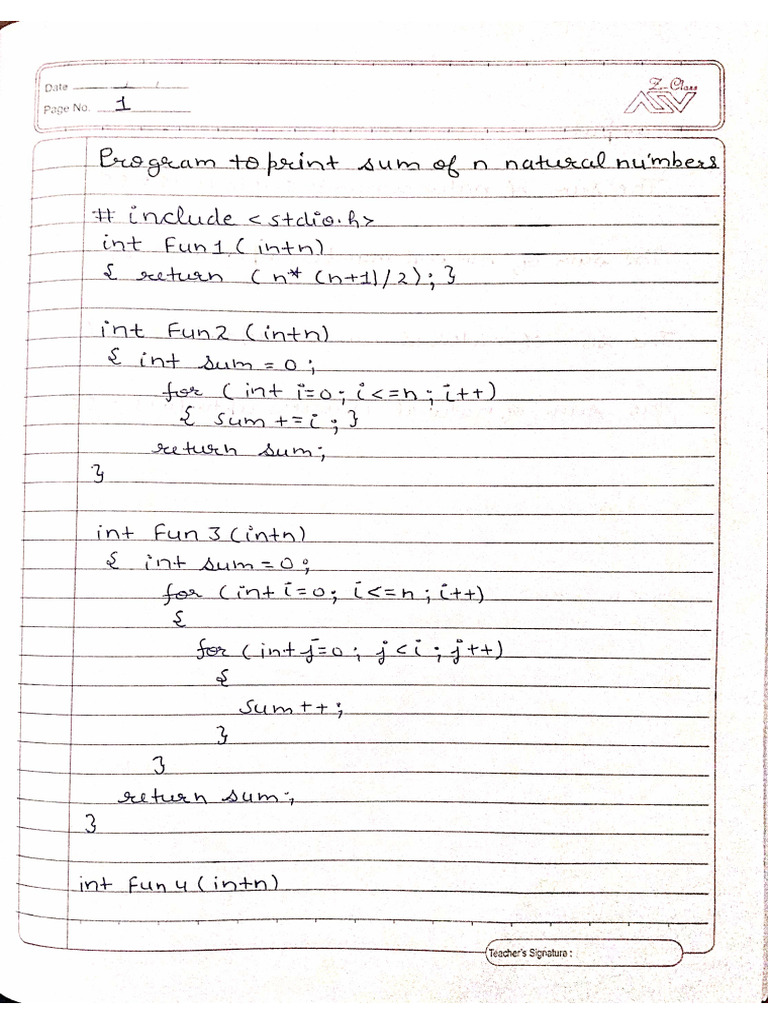 Date / /
Page No. 1
Z-Class
Program to print sum of n natural numbers
# include <stdio.h>
int Fun1 (int n)
{ return (n* (n+1)/2); }
int Fun2 (int n)
{ int sum = 0;
for (int i=0; i<=n; i++)
{ sum += i; }
return sum;
}
int Fun 3 (int n)
{ int sum = 0;
for (int i=0; i<=n; i++)
{
for (int j=0; j<i; j++)
{
sum++;
}
}
return sum;
}
int Fun 4 (int n)
Teacher's Signature :